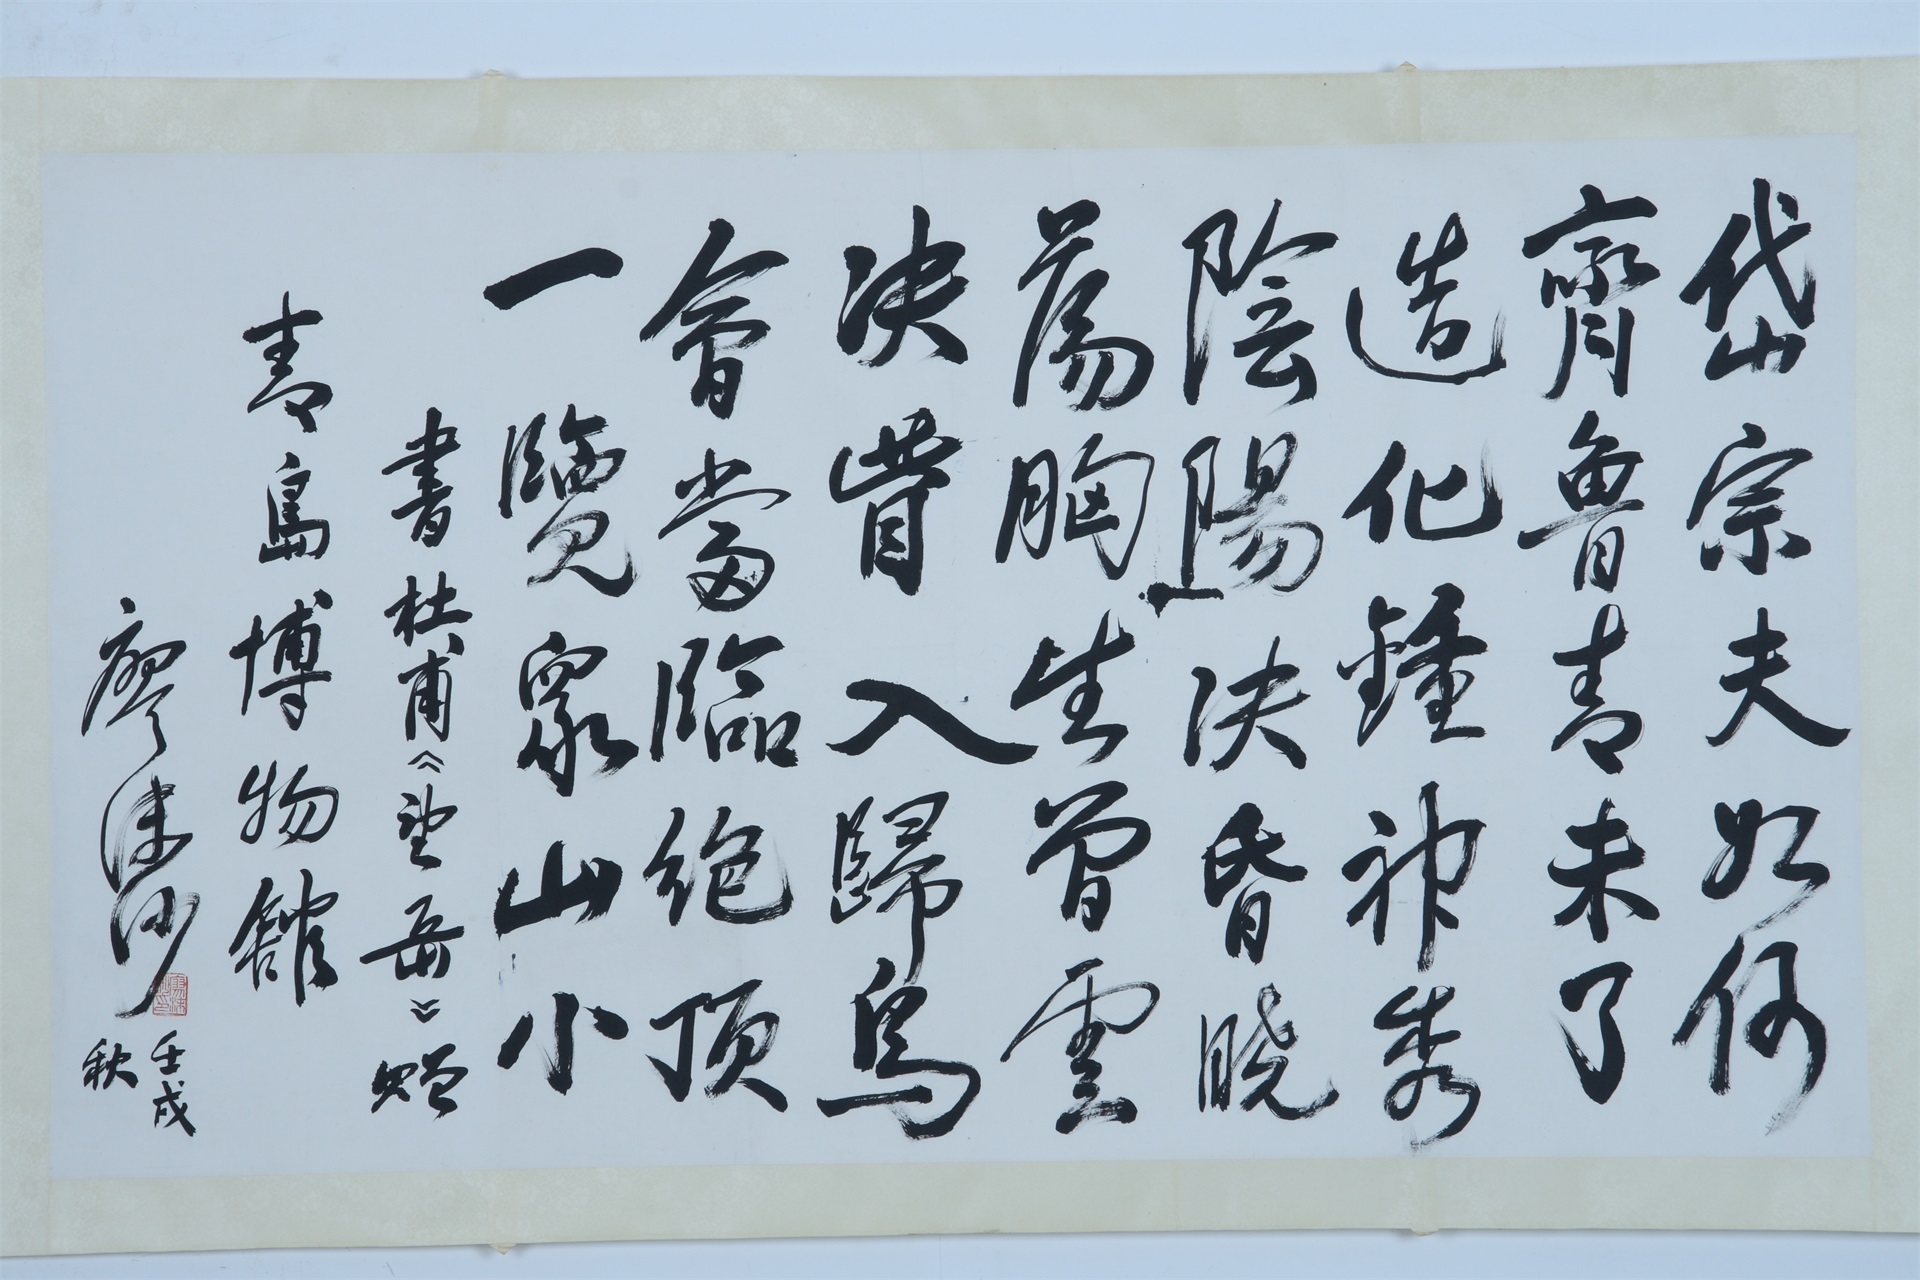 岱宗夫如何
齊魯青未了
造化鍾神秀
陰陽决昏曉
蕩胸生曾雲
决眥入歸鳥
會當臨絶頂
一覽衆山小
書杜甫《望岳》贈
青島博物舘
廖沫沙
壬戌
秋